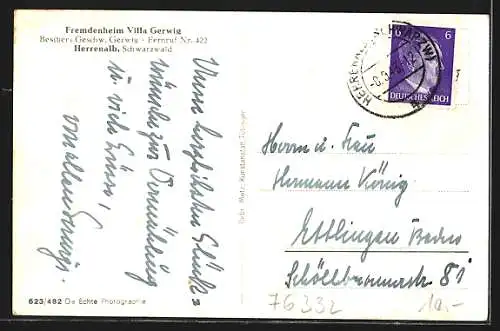 Fremdenheim Villa Gerwig
Besitzer: Geschw. Gerwig - Fernruf Nr. 422
Herrenalb, Schwarzwald
Unsere herzlichsten Glück-
wünsche zur Vermählung
u. viele Grüsse,
von allen
Gebr. Metz, Kunstanstalt, Tübingen
623/482 Die Echte Photographie
HERRENALB (SCHWARZW)
6 6
DEUTSCHES REICH
Herrn u. Frau
Hermann König
Ettlingen Baden
Schöllbronnerstr 81
76332
10,-